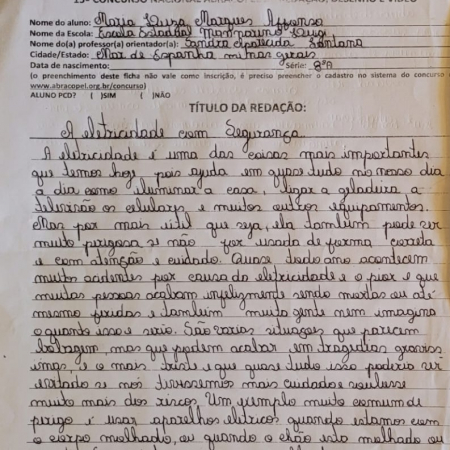 15º CONCURSO NACIONAL ABRACOPEL REDAÇÃO, DESENHO E VÍDEO
Nome do aluno: Maria Luisa Marques Affonso
Nome da Escola: Escola Estadual
Nome do(a) professor(a) orientador(a): Sandra Aparecida Santana
Cidade/Estado: Mar de Espanha minas gerais
Data de nascimento: Série: 8ºA
(o preenchimento desta ficha não vale como inscrição, é preciso preencher o cadastro no sistema do concurso
www.abracopel.org.br/concurso)
ALUNO PCD? ( )SIM ( )NÃO
TÍTULO DA REDAÇÃO:
A eletricidade com Segurança
A eletricidade é uma das coisas mais importantes
que temos hoje, pois ajuda em quase tudo no nosso dia
a dia como iluminar a casa, ligar a geladeira a
os celulares, e muitos outros equipamentos
Mas por mais util que seja, ela também pode ser
muito perigosa se não for usada de forma correta
e com atenção e cuidado. Quase todo ano acontecem
muitos acidentes por causa da eletricidade e o pior e que
muitas pessoas acabam infelizmente sendo mortas ou até
mesmo feridas e também muita gente nem imagina
o quanto isso e serio. São varias situaçoes que parecem
bobagem, mas que podem acabar em tragedias graviss
imas, e o mais triste e que quase tudo isso poderia ser
evitado se nós tivessemos mais cuidados e
muito mais dos riscos. Um exemplo muito comum de
pirigo é usar aparelhos elétricos quando estamos com
o corpo molhado, ou quando o chão esta molhado ou